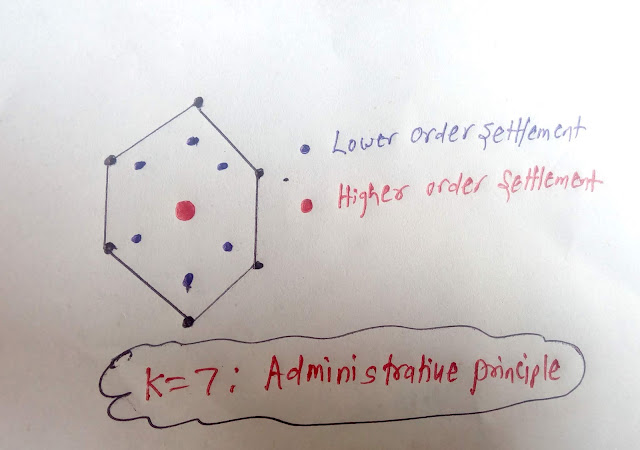 Lower order settlement
Higher order settlement
K=7: Administrative principle